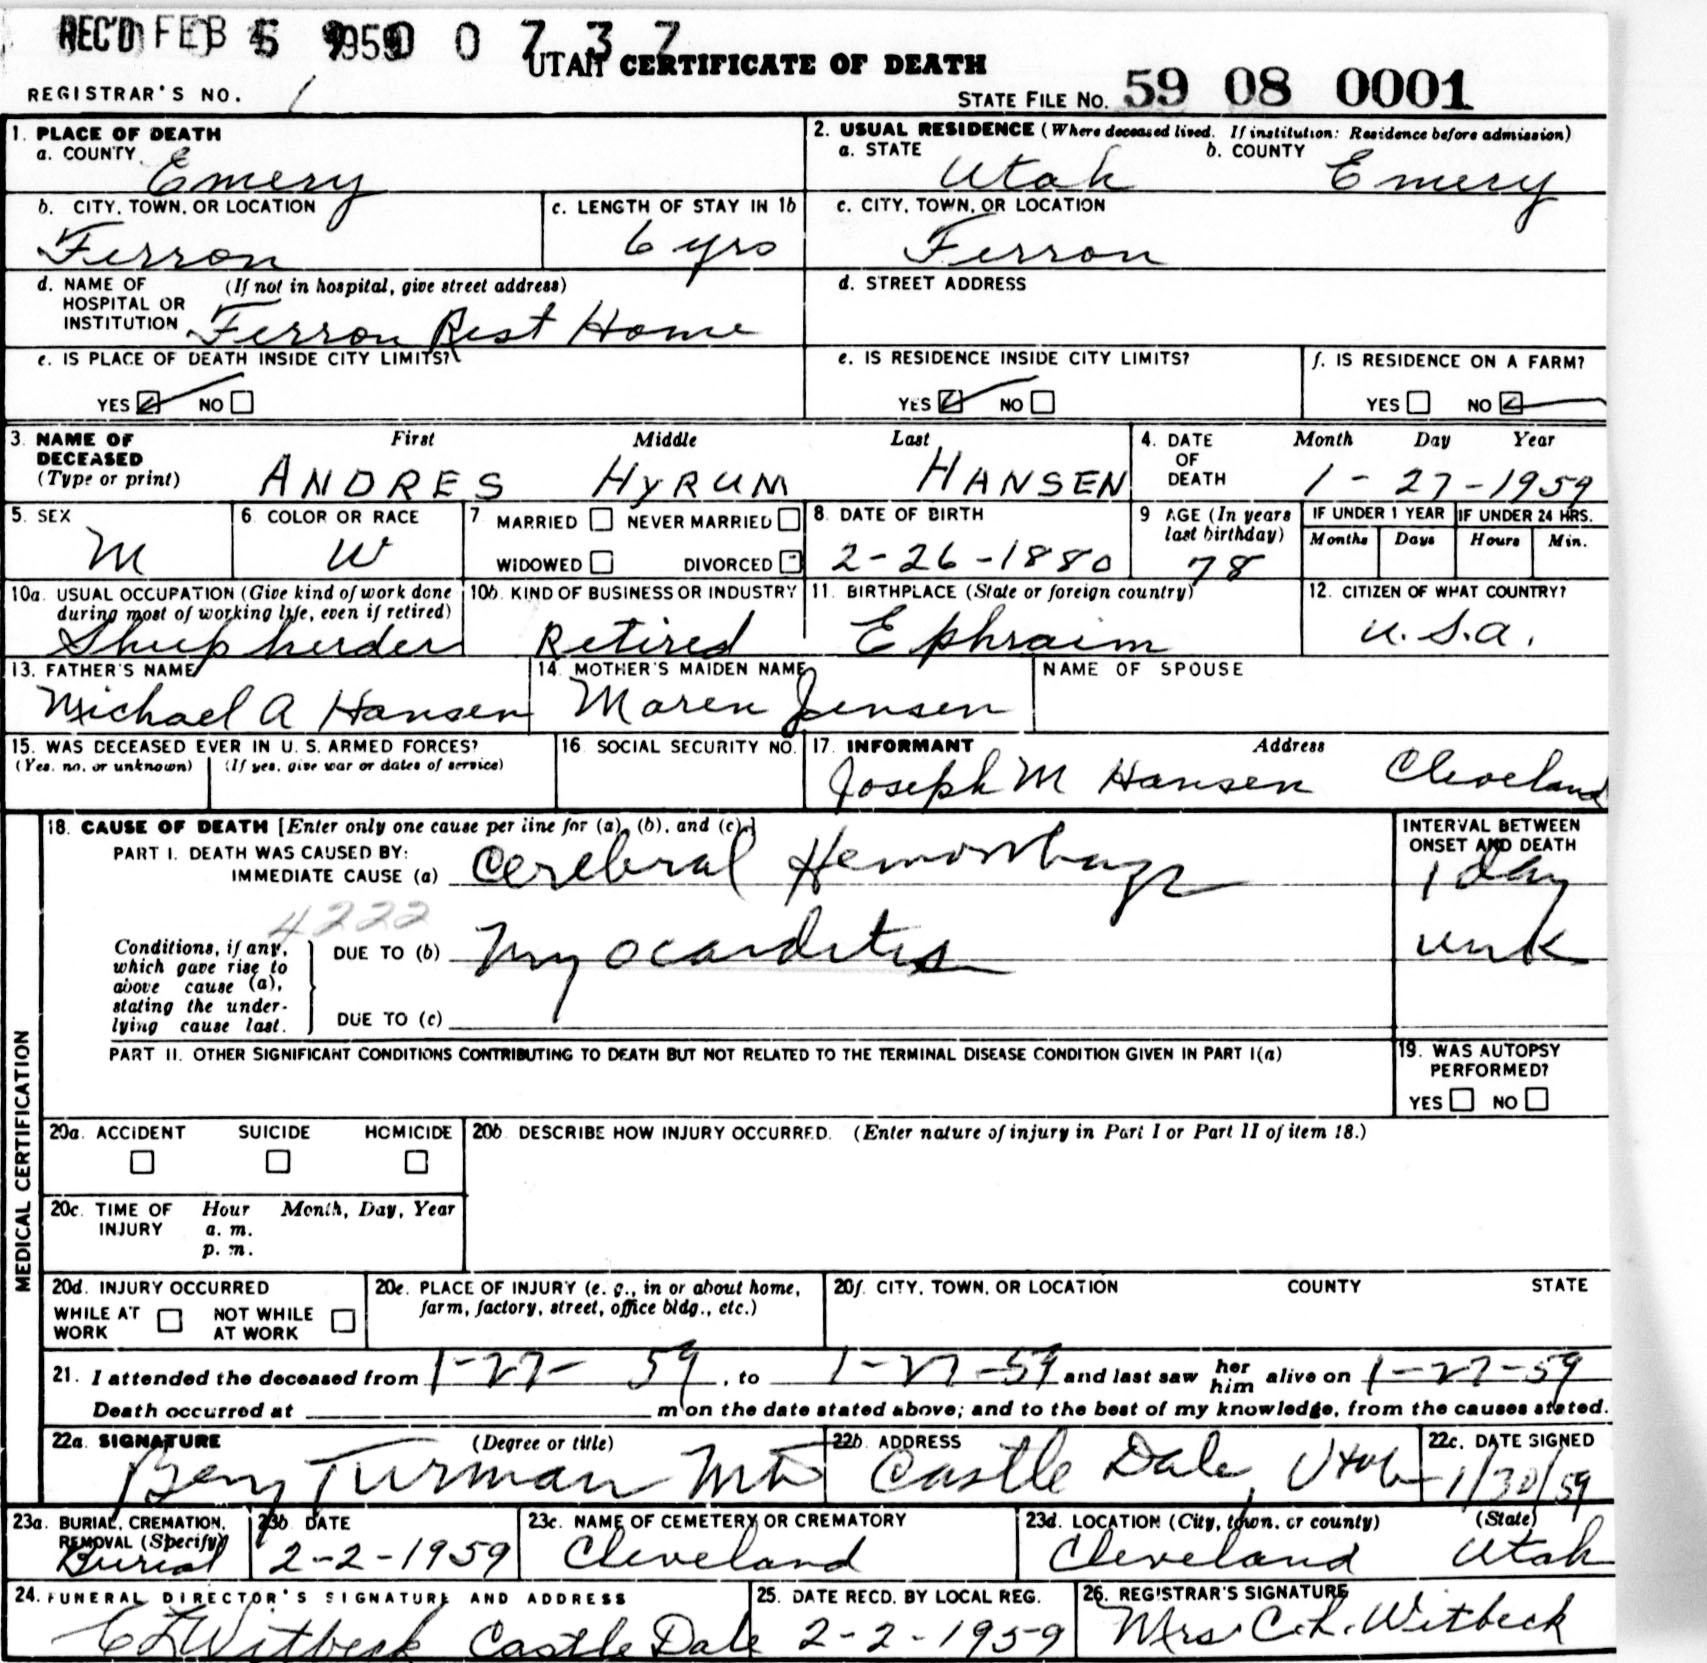 REC'D FEB 5 1959 0 0 7 3 7
UTAH CERTIFICATE OF DEATH
REGISTRAR'S NO. 1
STATE FILE NO. 59 08 0001
1. PLACE OF DEATH
a. COUNTY Emery
2. USUAL RESIDENCE (Where deceased lived. If institution: Residence before admission)
a. STATE Utah b. COUNTY Emery
b. CITY, TOWN, OR LOCATION Ferron
c. LENGTH OF STAY IN 1b 6 yrs
c. CITY, TOWN, OR LOCATION Ferron
d. NAME OF HOSPITAL OR INSTITUTION (If not in hospital, give street address)
Ferron Rest Home
d. STREET ADDRESS
e. IS PLACE OF DEATH INSIDE CITY LIMITS?
YES NO
e. IS RESIDENCE INSIDE CITY LIMITS?
YES NO
f. IS RESIDENCE ON A FARM?
YES NO
3. NAME OF DECEASED (Type or print)
First Middle Last
ANDRES HYRUM HANSEN
4. DATE OF DEATH
Month Day Year
1-27-1959
5. SEX M
6. COLOR OR RACE W
7. MARRIED NEVER MARRIED
WIDOWED DIVORCED
8. DATE OF BIRTH 2-26-1880
9 AGE (In years last birthday) 78
IF UNDER 1 YEAR IF UNDER 24 HRS.
Months Days Hours Min.
10a. USUAL OCCUPATION (Give kind of work done during most of working life, even if retired)
Sheepherder
10b. KIND OF BUSINESS OR INDUSTRY
Retired
11. BIRTHPLACE (State or foreign country)
Ephraim
12. CITIZEN OF WHAT COUNTRY?
U.S.A.
13. FATHER'S NAME
Michael A Hansen
14. MOTHER'S MAIDEN NAME
Maren Jensen
NAME OF SPOUSE
15. WAS DECEASED EVER IN U.S. ARMED FORCES?
(Yes, no, or unknown) (If yes, give war or dates of service)
16. SOCIAL SECURITY NO.
17. INFORMANT Address
Joseph M Hansen Cleveland
18. CAUSE OF DEATH [Enter only one cause per line for (a), (b), and (c).]
PART I. DEATH WAS CAUSED BY:
IMMEDIATE CAUSE (a) Cerebral Hemorrhage
INTERVAL BETWEEN ONSET AND DEATH
1 day
4222
Conditions, if any, which gave rise to above cause (a), stating the underlying cause last.
DUE TO (b) Myocarditis
unk
DUE TO (c)
PART II. OTHER SIGNIFICANT CONDITIONS CONTRIBUTING TO DEATH BUT NOT RELATED TO THE TERMINAL DISEASE CONDITION GIVEN IN PART I(a)
19. WAS AUTOPSY PERFORMED?
YES NO
MEDICAL CERTIFICATION
20a. ACCIDENT SUICIDE HOMICIDE
20b. DESCRIBE HOW INJURY OCCURRED. (Enter nature of injury in Part I or Part II of item 18.)
20c. TIME OF INJURY Hour Month, Day, Year
a. m.
p. m.
20d. INJURY OCCURRED
WHILE AT WORK NOT WHILE AT WORK
20e. PLACE OF INJURY (e. g., in or about home, farm, factory, street, office bldg., etc.)
20f. CITY, TOWN, OR LOCATION COUNTY STATE
21. I attended the deceased from 1-27-59, to 1-27-59 and last saw her him alive on 1-27-59
Death occurred at m on the date stated above; and to the best of my knowledge, from the causes stated.
22a. SIGNATURE (Degree or title)
Benj Turman MD
22b. ADDRESS
Castle Dale, Utah
22c. DATE SIGNED
1/30/59
23a. BURIAL, CREMATION, REMOVAL (Specify)
Burial
23b. DATE
2-2-1959
23c. NAME OF CEMETERY OR CREMATORY
Cleveland
23d. LOCATION (City, town, or county) (State)
Cleveland Utah
24. FUNERAL DIRECTOR'S SIGNATURE AND ADDRESS
C L Witbeck Castle Dale
25. DATE RECD. BY LOCAL REG.
2-2-1959
26. REGISTRAR'S SIGNATURE
Mrs. C. L. Witbeck